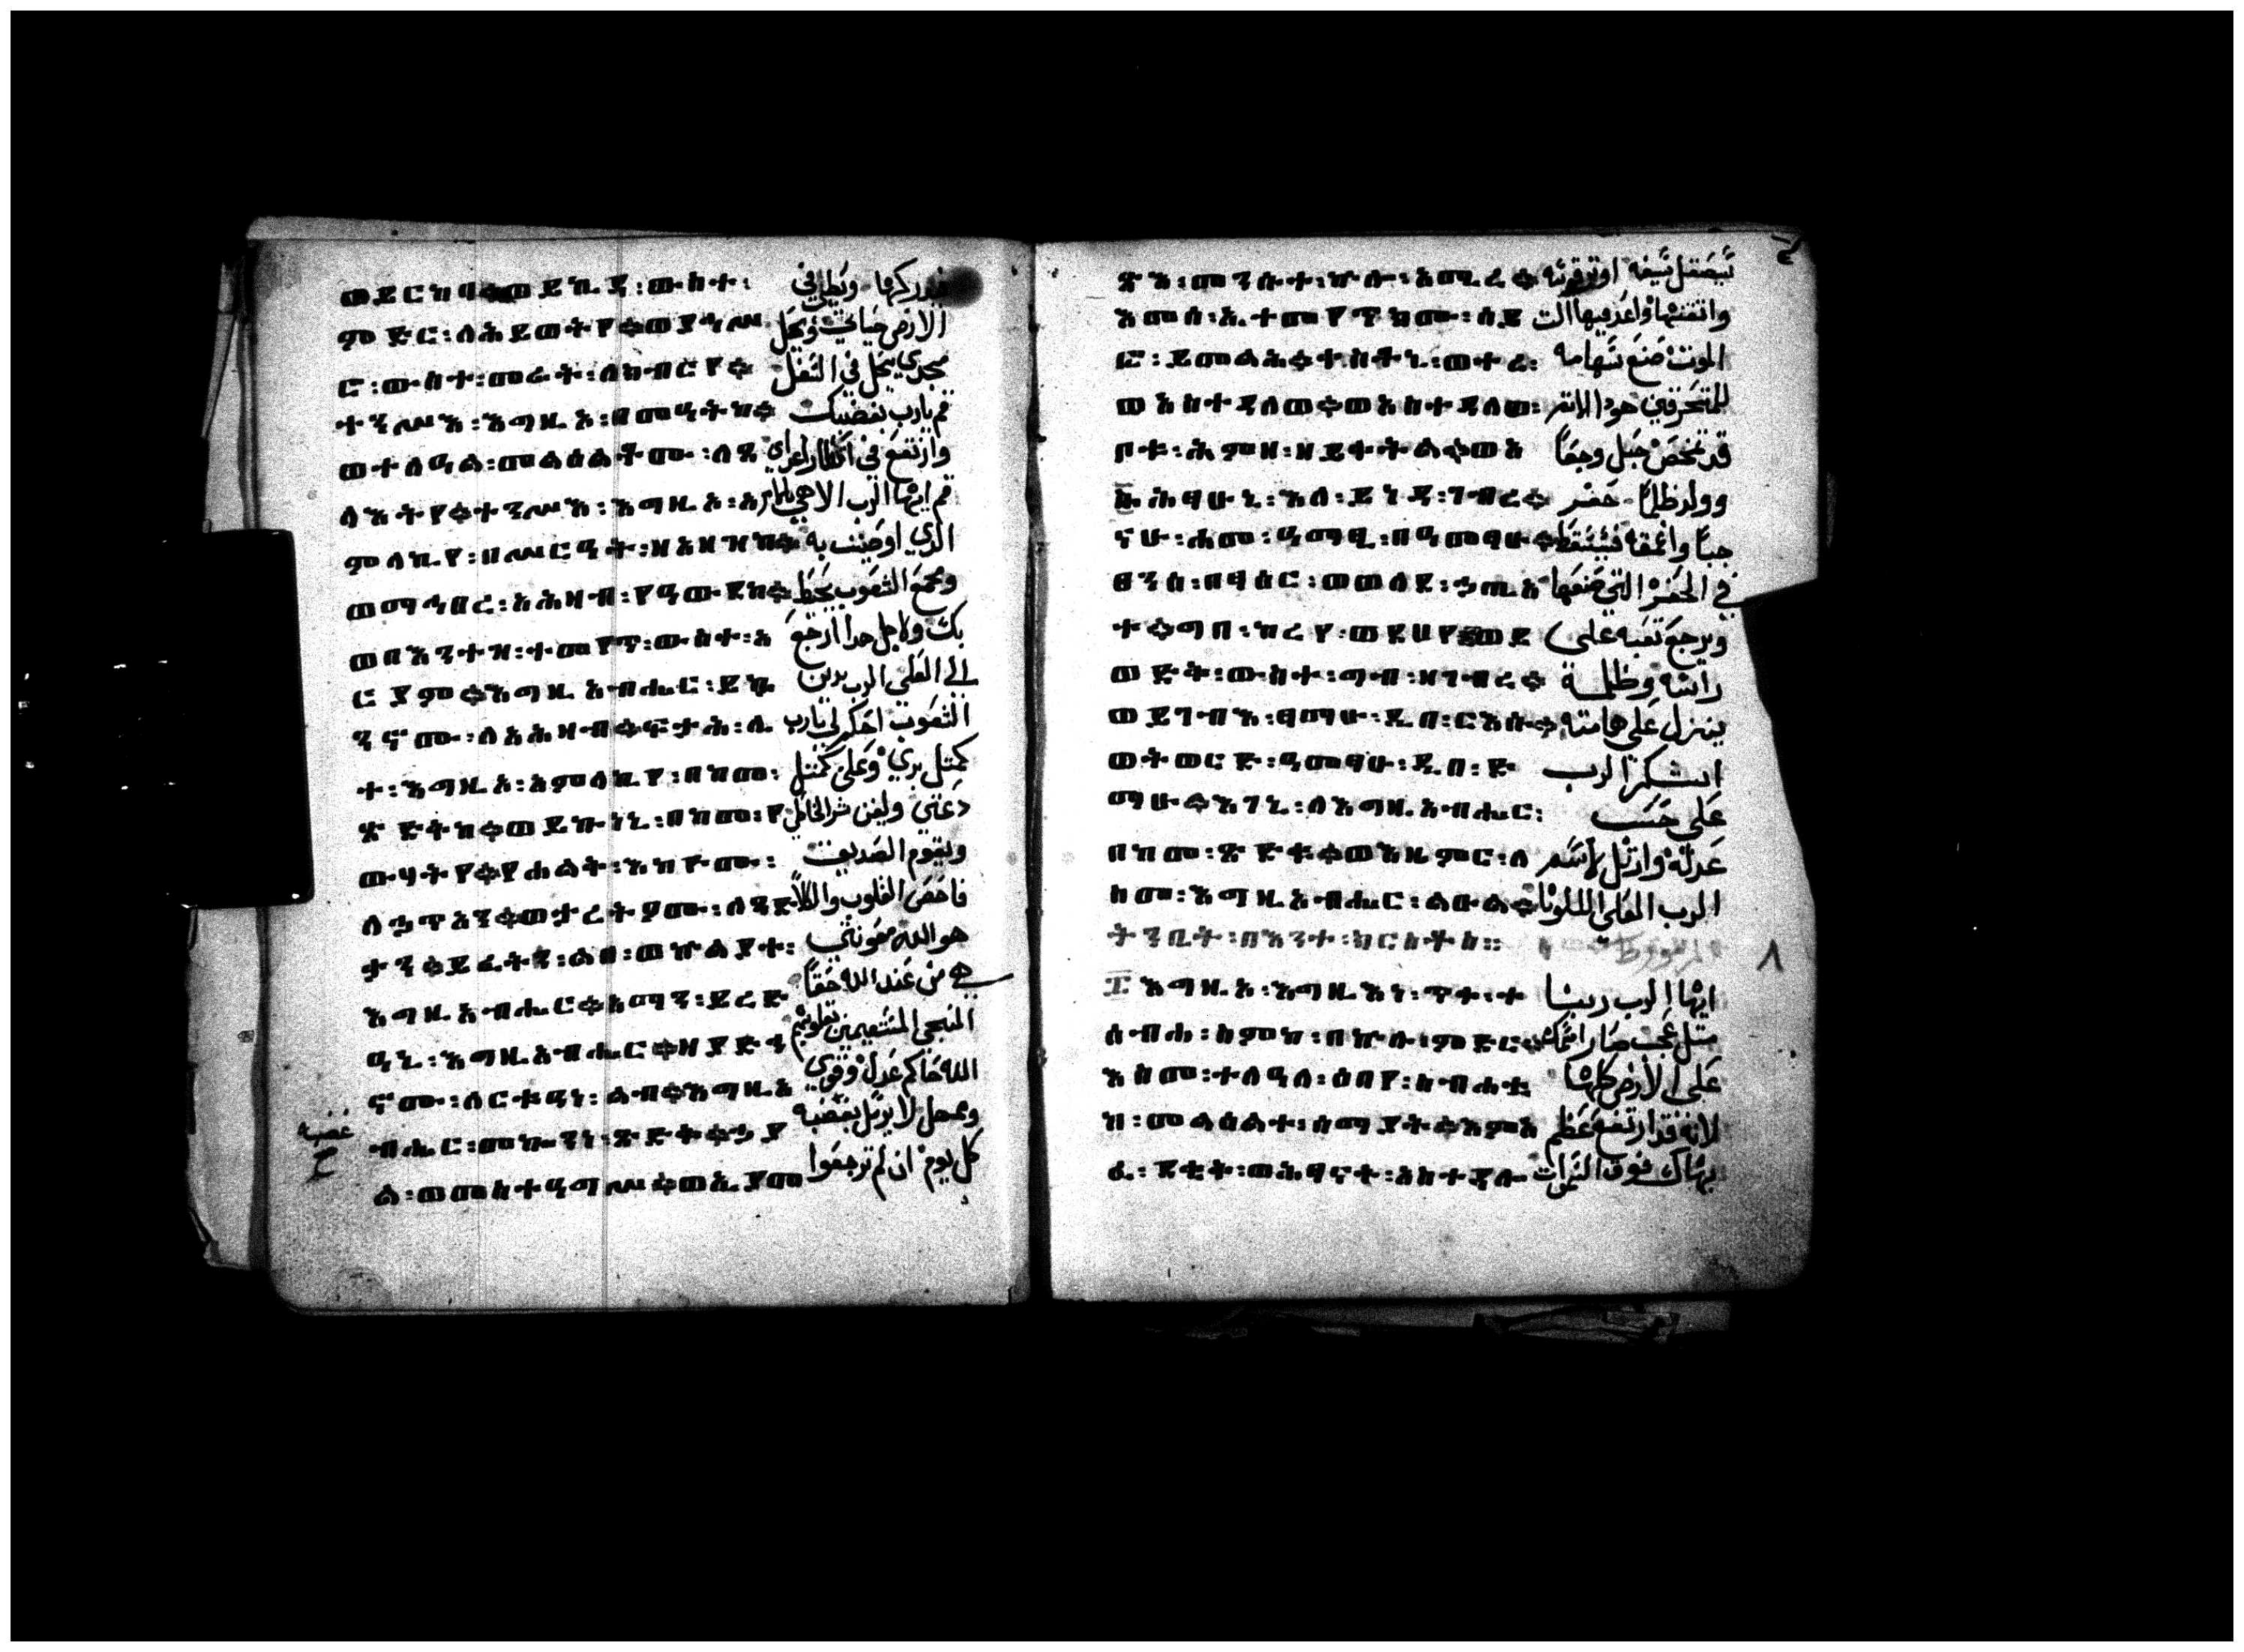 ወይርከባ።ወይኪዳ፡ውስተ፡ فيدركها ويطئ في
ምድር፡ለሕይወትየ።ወያኅሥ الارض حياتي ويحل
ር፡ውስተ፡መሬት፡ለክብርየ። مجدي يحل في التفل
ተንሥእ፡እግዚኦ፡በመዓትከ። قم يارب بغضبك
ወተለዓል፡መልዕልቶሙ፡ለጸ وارتفع في اقطار اعداي
ላእትየ።ተንሥእ፡እግዚኦ፡አ قم ايها الرب الاهي بالامر
ምላኪየ፡በሥርዓት፡ዘአዘዝከ። الذي اوصيت به
ወማኅበረ፡አሕዛብ፡የዓውደከ። ومجمع الشعوب يحط
ወበእንተዝ፡ተመየጥ፡ውስተ፡አ بك ولاجل هدا ارجع
ርያም።እግዚአብሔር፡ይኴ الي العلي الرب يدين
ንኖሙ፡ለአሕዛብ።ፍታሕ፡ሊ الشعوب احكم لي يارب
ተ፡እግዚኦ፡አምላኪየ፡በከመ፡ كمتل بري وعلى كمتل
ጽድቅከ።ወይኩነኒ፡በከመ፡የ دعتي وليفن شر الخاطي
ውሃትየ።የሐልቅ፡እከዮሙ፡ ويقوم الصديق
ለኃጥአን።ወታረትዖሙ፡ለጻድ فاحص القلوب والكلا
ቃን።ይፈትን፡ልበ፡ወኵልያተ፡ هو الله معونتي
እግዚአብሔር።አማን፡ይረድ هي من عند الله حقا
ዓኒ፡እግዚአብሔር።ዘያድኅ المنجي المستقيمين بقلوبهم
ኖሙ፡ለርቱዓነ፡ልብ።እግዚአ الله حاكم عدل وقوي
ብሔር፡መኰንነ፡ጽድቅ።ኃያ وممهل لا يرسل بغضبه غضبه
ል፡ወመስተዓግሥ።ወኢያመ كل يوم ان لم ترجعوا
ጽእ፡መንሱተ፡ኵሎ፡አሚረ። سيصقل سيفه اوتر قوسه
እመሰ፡ኢተመየጥክሙ፡ሰይ واتقنها واعد فيها الت
ፎ፡ይመልሕ።ቀስቶኒ፡ወተረ፡ الموت صنع سهامه
ወአስተዳለወ።ወአስተዳለወ፡ للمتحرقين هودا الاتم
ቦቱ፡ሕምዘ፡ዘይቀትል።ወአ قد تمخض حبل وجعا
ሕፃሁኒ፡ለእለ፡ይነዱ፡ገብረ። وولد ظلما حفر
ናሁ፡ሐመ፡ዓማፂ፡በዓመፃሁ። جبا واعمقه فسيسقط
ፀንሰ፡በፃዕር፡ወወለደ፡ኃጢአ في الحفرة التي صنعها
ተ።ግበ፡ከረየ፡ወደሀየ።ወይ ويرجع تعبه على
ወድቅ፡ውስተ፡ግብ፡ዘገብረ። راسه وظلمة
ወይገብእ፡ፃማሁ፡ዲበ፡ርእሱ። ينزل على هامته
ወትወርድ፡ዓመፃሁ፡ዲበ፡ድ اشكر الرب
ማሁ።እገኒ፡ለእግዚአብሔር፡ على حسب
በከመ፡ጽድቁ።ወእዜምር፡ለ عدله وارتل لاسم
ስመ፡እግዚአብሔር፡ልዑል። الرب العلي
ትንቢት፡በእንተ፡ክርስቶስ። ٨
፰ እግዚኦ፡እግዚእነ፡ጥቀ፡ተ ايها الرب ربنا
ሰብሐ፡ስምከ፡በኵሉ፡ምድር። متل عجب صار اسمك
እስመ፡ተለዓለ፡ዕበየ፡ስብሐቲ على الارض كلها
ከ፡መልዕልተ፡ሰማያት።እምአ لانه قد ارتفع عظم
ፈ፡ደቂቅ፡ወሕፃናት፡አስተዳሎ بهاك فوق السموات